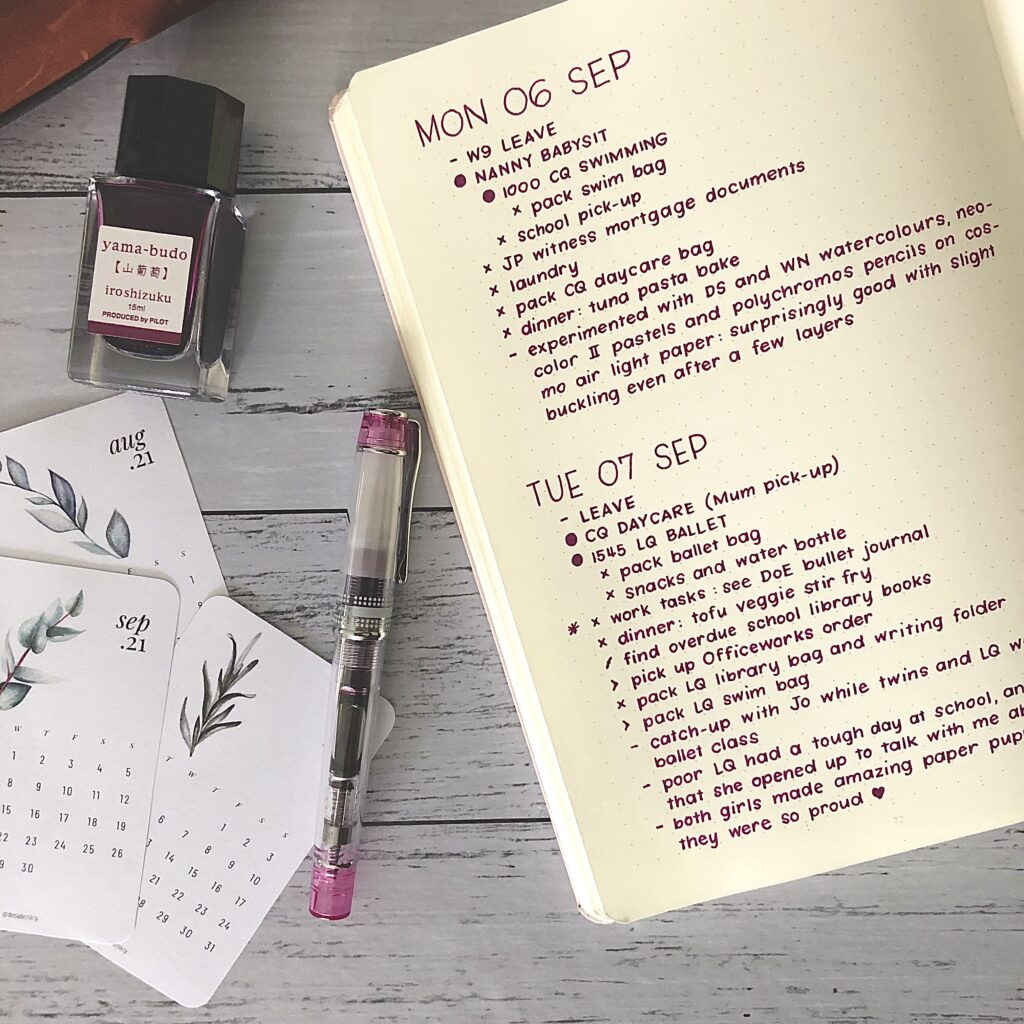 yama-budo
【山葡萄】
iroshizuku
15ml
PRODUCED by PILOT
aug
.21
S
E S 1
9
sep
.21
W T F S S
1 2 3 4 5
8 9 10 11 12
15 16 17 18 19
22 23 24 25 26
9 30
@decadethirty
T W T F S S
1 2 3
6 7 8 9 10
3 14 15 16 17
21 22 23 24
28 29 30 31
MON 06 SEP
- W9 LEAVE
● NANNY BABYSIT
● 1000 CQ SWIMMING
x pack swim bag
x school pick-up
x JP witness mortgage documents
x laundry
x pack CQ daycare bag
x dinner: tuna pasta bake
- experimented with DS and WN watercolours, neo-
color II pastels and polychromos pencils on cos-
mo air light paper: surprisingly good with slight
buckling even after a few layers
TUE 07 SEP
- LEAVE
● CQ DAYCARE (Mum pick-up)
● 1545 LQ BALLET
x pack ballet bag
x snacks and water bottle
* x work tasks: see DoE bullet journal
x dinner: tofu veggie stir fry
/ find overdue school library books
> pick up Officeworks order
x pack LQ library bag and writing folder
> pack LQ swim bag
- catch-up with Jo while twins and LQ w
ballet class
- poor LQ had a tough day at school, an
that she opened up to talk with me ab
- both girls made amazing paper pupp
they were so proud ♥
72